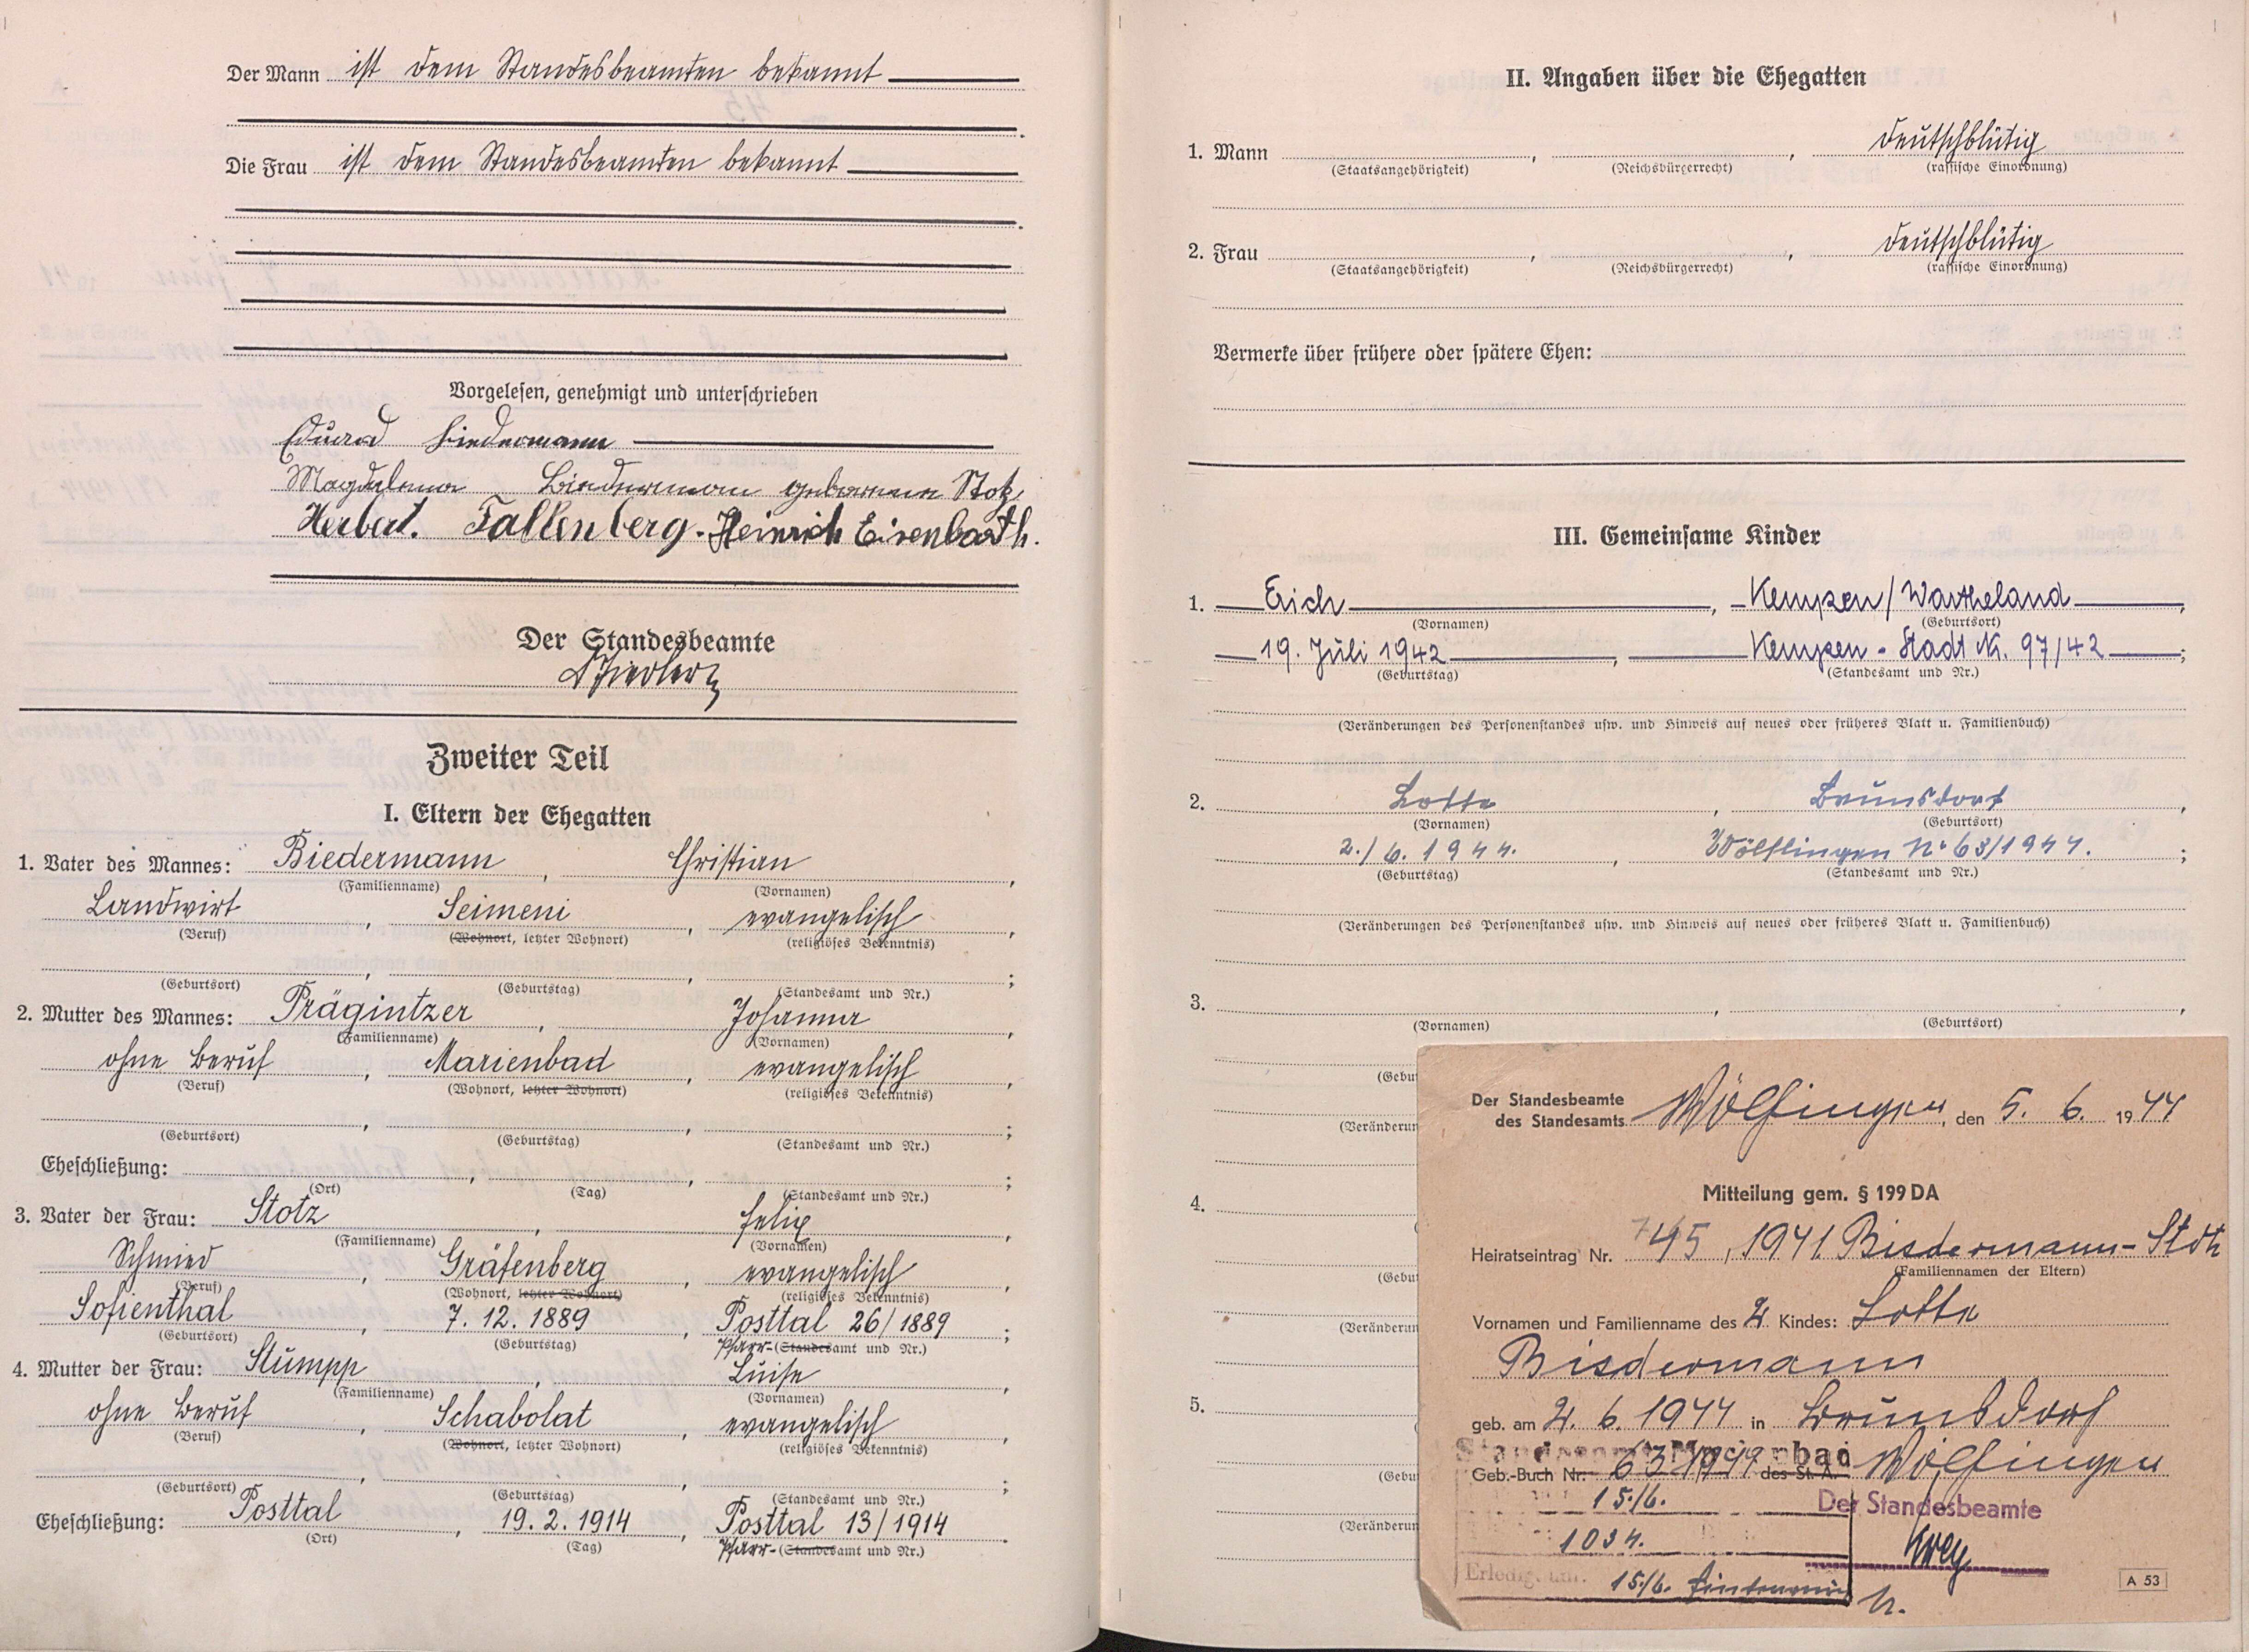 Der Mann ist dem Standesbeamten bekannt
Die Frau ist dem Standesbeamten bekannt
Vorgelesen, genehmigt und unterschrieben
Eduard Biedermann
Magdalena Biedermann geborene Stotz
Herbert. Fallenberg. Heinrich Eisenbarth.
Der Standesbeamte
Zweiter Teil
I. Eltern der Ehegatten
1. Vater des Mannes: Biedermann, Christian,
(Familienname) (Vornamen)
Landwirt, Seimeni, evangelisch,
(Beruf) (Wohnort, letzter Wohnort) (religiöses Bekenntnis)
(Geburtsort) (Geburtstag) (Standesamt und Nr.)
2. Mutter des Mannes: Prägintzer, Johanna,
(Familienname) (Vornamen)
ohne Beruf, Marienbad, evangelisch,
(Beruf) (Wohnort, letzter Wohnort) (religiöses Bekenntnis)
(Geburtsort) (Geburtstag) (Standesamt und Nr.)
Eheschließung:
(Ort) (Tag) (Standesamt und Nr.)
3. Vater der Frau: Stotz, Felix,
(Familienname) (Vornamen)
Schmied, Gräfenberg, evangelisch,
(Beruf) (Wohnort, letzter Wohnort) (religiöses Bekenntnis)
Sofienthal, 7. 12. 1889, Posttal 26/1889;
(Geburtsort) (Geburtstag) Pfarr-(Standesamt und Nr.)
4. Mutter der Frau: Stumpp, Luise,
(Familienname) (Vornamen)
ohne Beruf, Schabolat, evangelisch,
(Beruf) (Wohnort, letzter Wohnort) (religiöses Bekenntnis)
(Geburtsort) (Geburtstag) (Standesamt und Nr.)
Eheschließung: Posttal, 19. 2. 1914, Posttal 13/1914.
(Ort) (Tag) Pfarr-(Standesamt und Nr.)
II. Angaben über die Ehegatten
1. Mann , , deutschblütig
(Staatsangehörigkeit) (Reichsbürgerrecht) (rassische Einordnung)
2. Frau , , deutschblütig
(Staatsangehörigkeit) (Reichsbürgerrecht) (rassische Einordnung)
Vermerke über frühere oder spätere Ehen:
III. Gemeinsame Kinder
1. Erich, Kempen/Wartheland,
(Vornamen) (Geburtsort)
19. Juli 1942, Kempen-Stadt N. 97/42;
(Geburtstag) (Standesamt und Nr.)
(Veränderungen des Personenstandes usw. und Hinweis auf neues oder früheres Blatt u. Familienbuch)
2. Lotte, Brunsdorf,
(Vornamen) (Geburtsort)
2./6. 1944., Wölflingen No 63/1944.;
(Geburtstag) (Standesamt und Nr.)
(Veränderungen des Personenstandes usw. und Hinweis auf neues oder früheres Blatt u. Familienbuch)
3.
(Vornamen) (Geburtsort)
(Gebu
(Veränderun
4.
(Gebu
(Veränderun
5.
(Gebu
(Veränderun
Der Standesbeamte
des Standesamts Wölfingen, den 5. 6. 1944
Mitteilung gem. § 199 DA
Heiratseintrag Nr. 45, 1941 Biedermann-Stotz
(Familiennamen der Eltern)
Vornamen und Familienname des 2. Kindes: Lotte
Biedermann
geb. am 2. 6. 1944 in Brunsdorf
Standesamt Marienbad
Geb.-Buch Nr. 63/1944 des St. A. Wölfingen
15./6. Der Standesbeamte
1034. Krey
Erledig. am: 15./6.
A 53